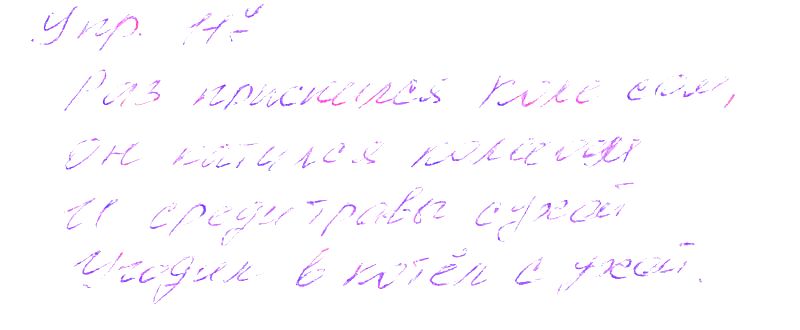 Упр.
Раз приснился Коле сон,
Он катился колесом
И среди травы сухой
Угодил в котёл с ухой.